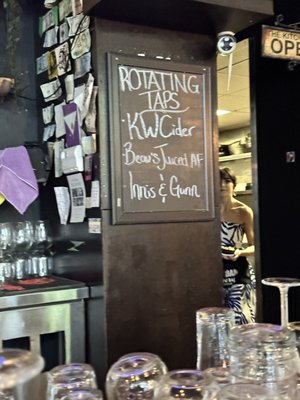 ROTATING
TAPS
KW Cider
Beau's Juiced AF
Innis & Gunn
THE KITCHEN
OPE